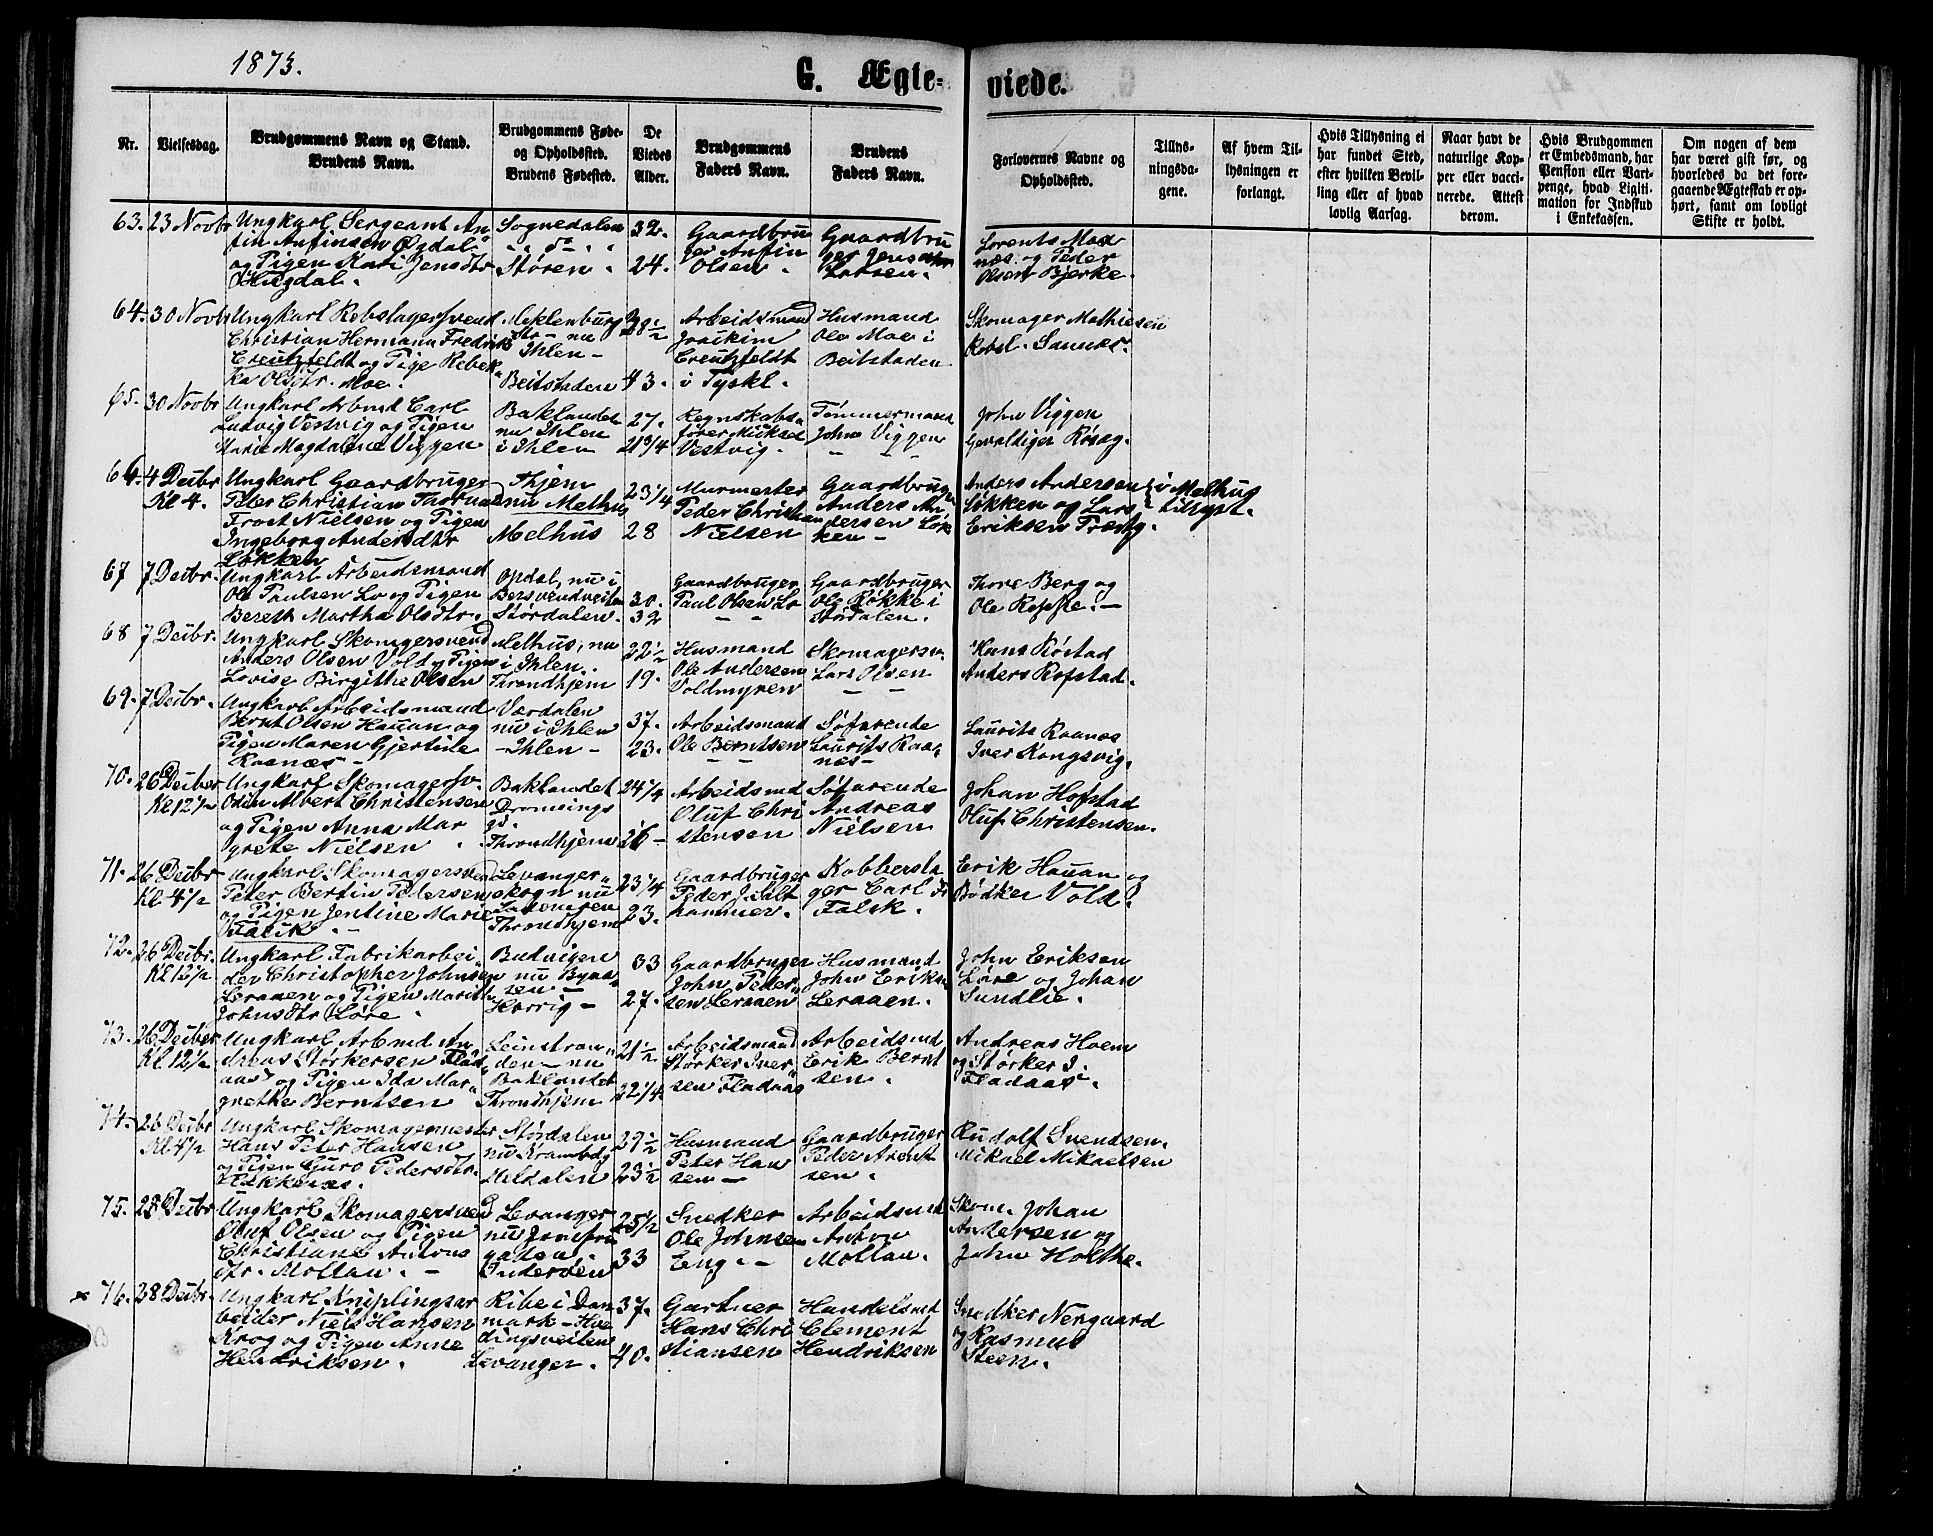 1873.
G. Ægte-
viede.
Nr.
Vielsesdag.
Brudgommens Navn og Stand.
Brudens Navn.
Brudgommens Føde-
og Opholdssted.
Brudens Fødested.
De
Viedes
Alder.
Brudgommens
Faders Navn.
Brudens
Faders Navn.
Forlovernes Navne og
Opholdssted.
Tillys-
ningsda-
gene.
Af hvem Til-
lysningen er
forlangt.
Hvis Tillysning ei
har fundet Sted,
efter hvilken Bevil-
ling eller af hvad
lovlig Aarsag.
Naar havt de
naturlige Kop-
per eller vacci-
nerede. Attest
derom.
Hvis Brudgommen
er Embedsmand, har
Pension eller Vart-
penge, hvad Ligiti-
mation for Indskud
i Enkekassen.
Om nogen af dem
har været gift før, og
hvorledes da det fore-
gaaende Ægteskab er op-
hørt, samt om lovligt
Skifte er holdt.
63. 23 Novbr
Ungkarl Sergeant An
fin Anfinsen Øgdal
og Pigen Kari Jensdtr
Hugdal.
Sognedalen
" " do " "
Støren "
32.
24.
Gaardbru
ger Anfin
Olsen.
Gaardbru
ger Jens
Larsen.
Lorents Mox
næs og Peder
Olsen Bjerke.
64. 30 Novbr
Ungkarl Rebslagersvend
Christian Hermann Fredrik
Creutzfeldt og Pige Rebek
ka Olsdtr. Moe.
Meklenburg
Str - nu
Ihlen -
Beitstaden
28½
43.
Arbeidsmand
Joakim
Creutzfeldt
i Tyskl.
Husmand
Ole Moe i
Beitstaden
Skomager Mathiesen
Rebsl. Sannes.
65. 30 Novbr
Ungkarl Arbmd Carl
Ludvig Vestvig og Pigen
Marie Magdalene Viggen
Baklandet
nu Ihlen
i Ihlen
27.
21¾
Regnskabs
fører Mikael
Vestvig.
Tømmermand
John Viggen
" " "
John Viggen
Gevaldiger Rosag.
66. 4 Decbr
Kl 4.
Ungkarl Gaardbruger
Peter Christian Thornæs
Frost Nielsen og Pigen
Ingeborg Andersdtr
Løkken
Thjem
nu Melhus
Melhus
23¼
28
Murmester
Peder Christian
Nielsen
Gaardbrug
Anders An
dersen Løk
ken -
Anders Andersen
Løkken og Lars
Eriksen Træthg.
i Melhus
tillyst.
67 7 Decbr.
Ungkarl Arbeidsmand
Ole Paulsen Lo og Pigen
Bereth Martha Olsdtr.
Opdal, nu i
Bersvendveiten
Størdalen.
30.
32
Gaardbruger
Paul Olsen Lo
- -
Gaardbruger
Ole Røkke i
Størdalen.
Thore Berg og
Ole Røkke. -
68 7 Decbr.
Ungkarl Skomagersvend
Anders Olsen Vold og Pigen
Lovise Birgithe Olsen
Melhus, nu
i Ihlen.
Throndhjem
22½
19.
Husmand
Ole Andersen
Voldmyren
Skomagersv.
Lars Olsen
- -
Hans Røstad
Anders Rofstad.
69. 7 Decbr.
Ungkarl Arbeidsmand
Bernt Olsen Hauan og
Pigen Maren Gjertine
Raanæs -
Værdalen
nu i Ihlen
- Ihlen -
37.
23.
Arbeidsmand
Ole Berntsen
- -
Søfarende
Laurits Raa
næs -
Laurits Raanæs
Iver Kongsvig.
70. 26 Decber
Kl 12½
Ungkarl Skomagersv.
Odin Albert Christensen
og Pigen Anna Mar
grete Nielsen
Baklandet
Dronnings
gd.
Throndhjem
24¼
26 -
Arbeidsmd
Oluf Chri
stensen
Søfarende
Andreas
Nielsen
Johan Hofstad
Oluf Christensen.
71. 26 Decbr
Kl 4½
Ungkarl Skomagersvend
Peter Bertin Pedersen
og Pigen Jentine Marie
Falck. -
Levanger
skogn nu
Throndhjem
23¼
23.
Gaardbruger
Peder J. Salt
hammer.
Kobbersla
ger Carl Fr
Falsk.
Erik Hauan og
Bødker Vold.
72. 26 Decbr.
Kl 12½
Ungkarl Fabrikarbei
der Christopher Johnsen
Leraaen og Pigen Marith
Johnsdtr Løre
Budvigen
nu Byaa
sen -
Horrig -
33
27.
Gaardbruger
John Peder
sen Leraaen
Husmand
John Erik
Leraaen.
John Eriksen
Løre og Johan
Sundlie.
73. 26 Decber
Kl. 12½
Ungkarl Arbmd An
dreas Størkersen Flad
aas og Pigen Ida Mar
grethe Berntsen
Leinstran
den - nu
Baklandet
Throndhjem
21½
22¼
Arbeidsmand
Størker Iver
sen Fladaas
Arbeidsmd
Erik Bernt
sen.
Andreas Hoem
og Størker I.
Fladaas.
74. 26 Decbr
Kl 4½
Ungkarl Skomagermester
Hans Peter Hansen
og Pigen Guro Pedersdtr.
Hakkenæs.
Størdalen
nu Krambdg
Meldalen
29½
23½
Husmand
Peter Han
sen -
Gaardbruger
Peder Arent
sen.
Rudolf Svendsen.
Mikael Mikaelsen
75. 28 Decbr
Ungkarl Skomagersvend
Oluf Olsen og Pigen
Christiane Antons
dtr. Mollan. -
Levanger
nu Jomfru
gaden.
Inderøen
25½
33
Snedker
Ole Johnsen
Eng. -
Arbeidsmd
Anton
Mollan.
Skom. Johan
Andersen og
John Holthe.
× 76. 28 Decbr.
Ungkarl Kniplingsar
beider Niels Hansen
Krog og Pigen Anne
Hendriksen.
Ribe i Dan
mark - Hve
dingsveiten
Levanger.
37.
40.
Gartner
Hans Chri
stiansen
Handelsmd
Clement
Hendriksen
Snedker Nergaard
og Rasmus
Steen.